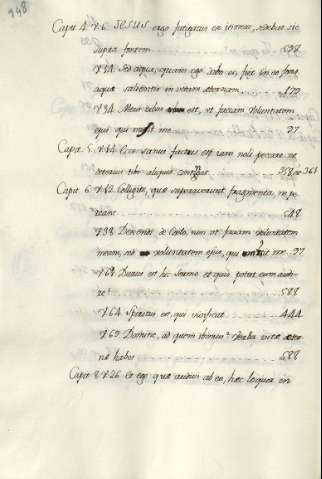 948
Cap. 4. V. 6. JESUS ergo fatigatus ex itinere, sedebat sic
supra fontem ... 538
V. 14. Sed aqua, quam ego dabo ei, fiet in eo fons
aquæ salientis in vitam æternam ... 172
V. 34. Meus cibus est, ut faciam voluntatem
ejus qui misit me ... 37
Cap. 5. V. 14. Ecce sanus factus es: jam noli peccare ne
deterius tibi aliquid contingat ... 358, 361
Cap. 6. V. 12. Colligite, quæ superaverunt fragmenta, ne pe
reant ... 548
V. 38. Descendi de Cœlo, non ut faciam voluntatem
meam, sed voluntatem ejus, qui misit me. 37
V. 61. Durus est hic sermo, et quis potest eum audi
re? ... 588
V. 64. Spiritus est, qui vivificat ... 444
V. 69. Domine, ad quem ibimus? Verba vitæ æter
næ habes ... 588
Cap. 8. V. 26. Et ego quæ audivi ab eo, hæc loquor in